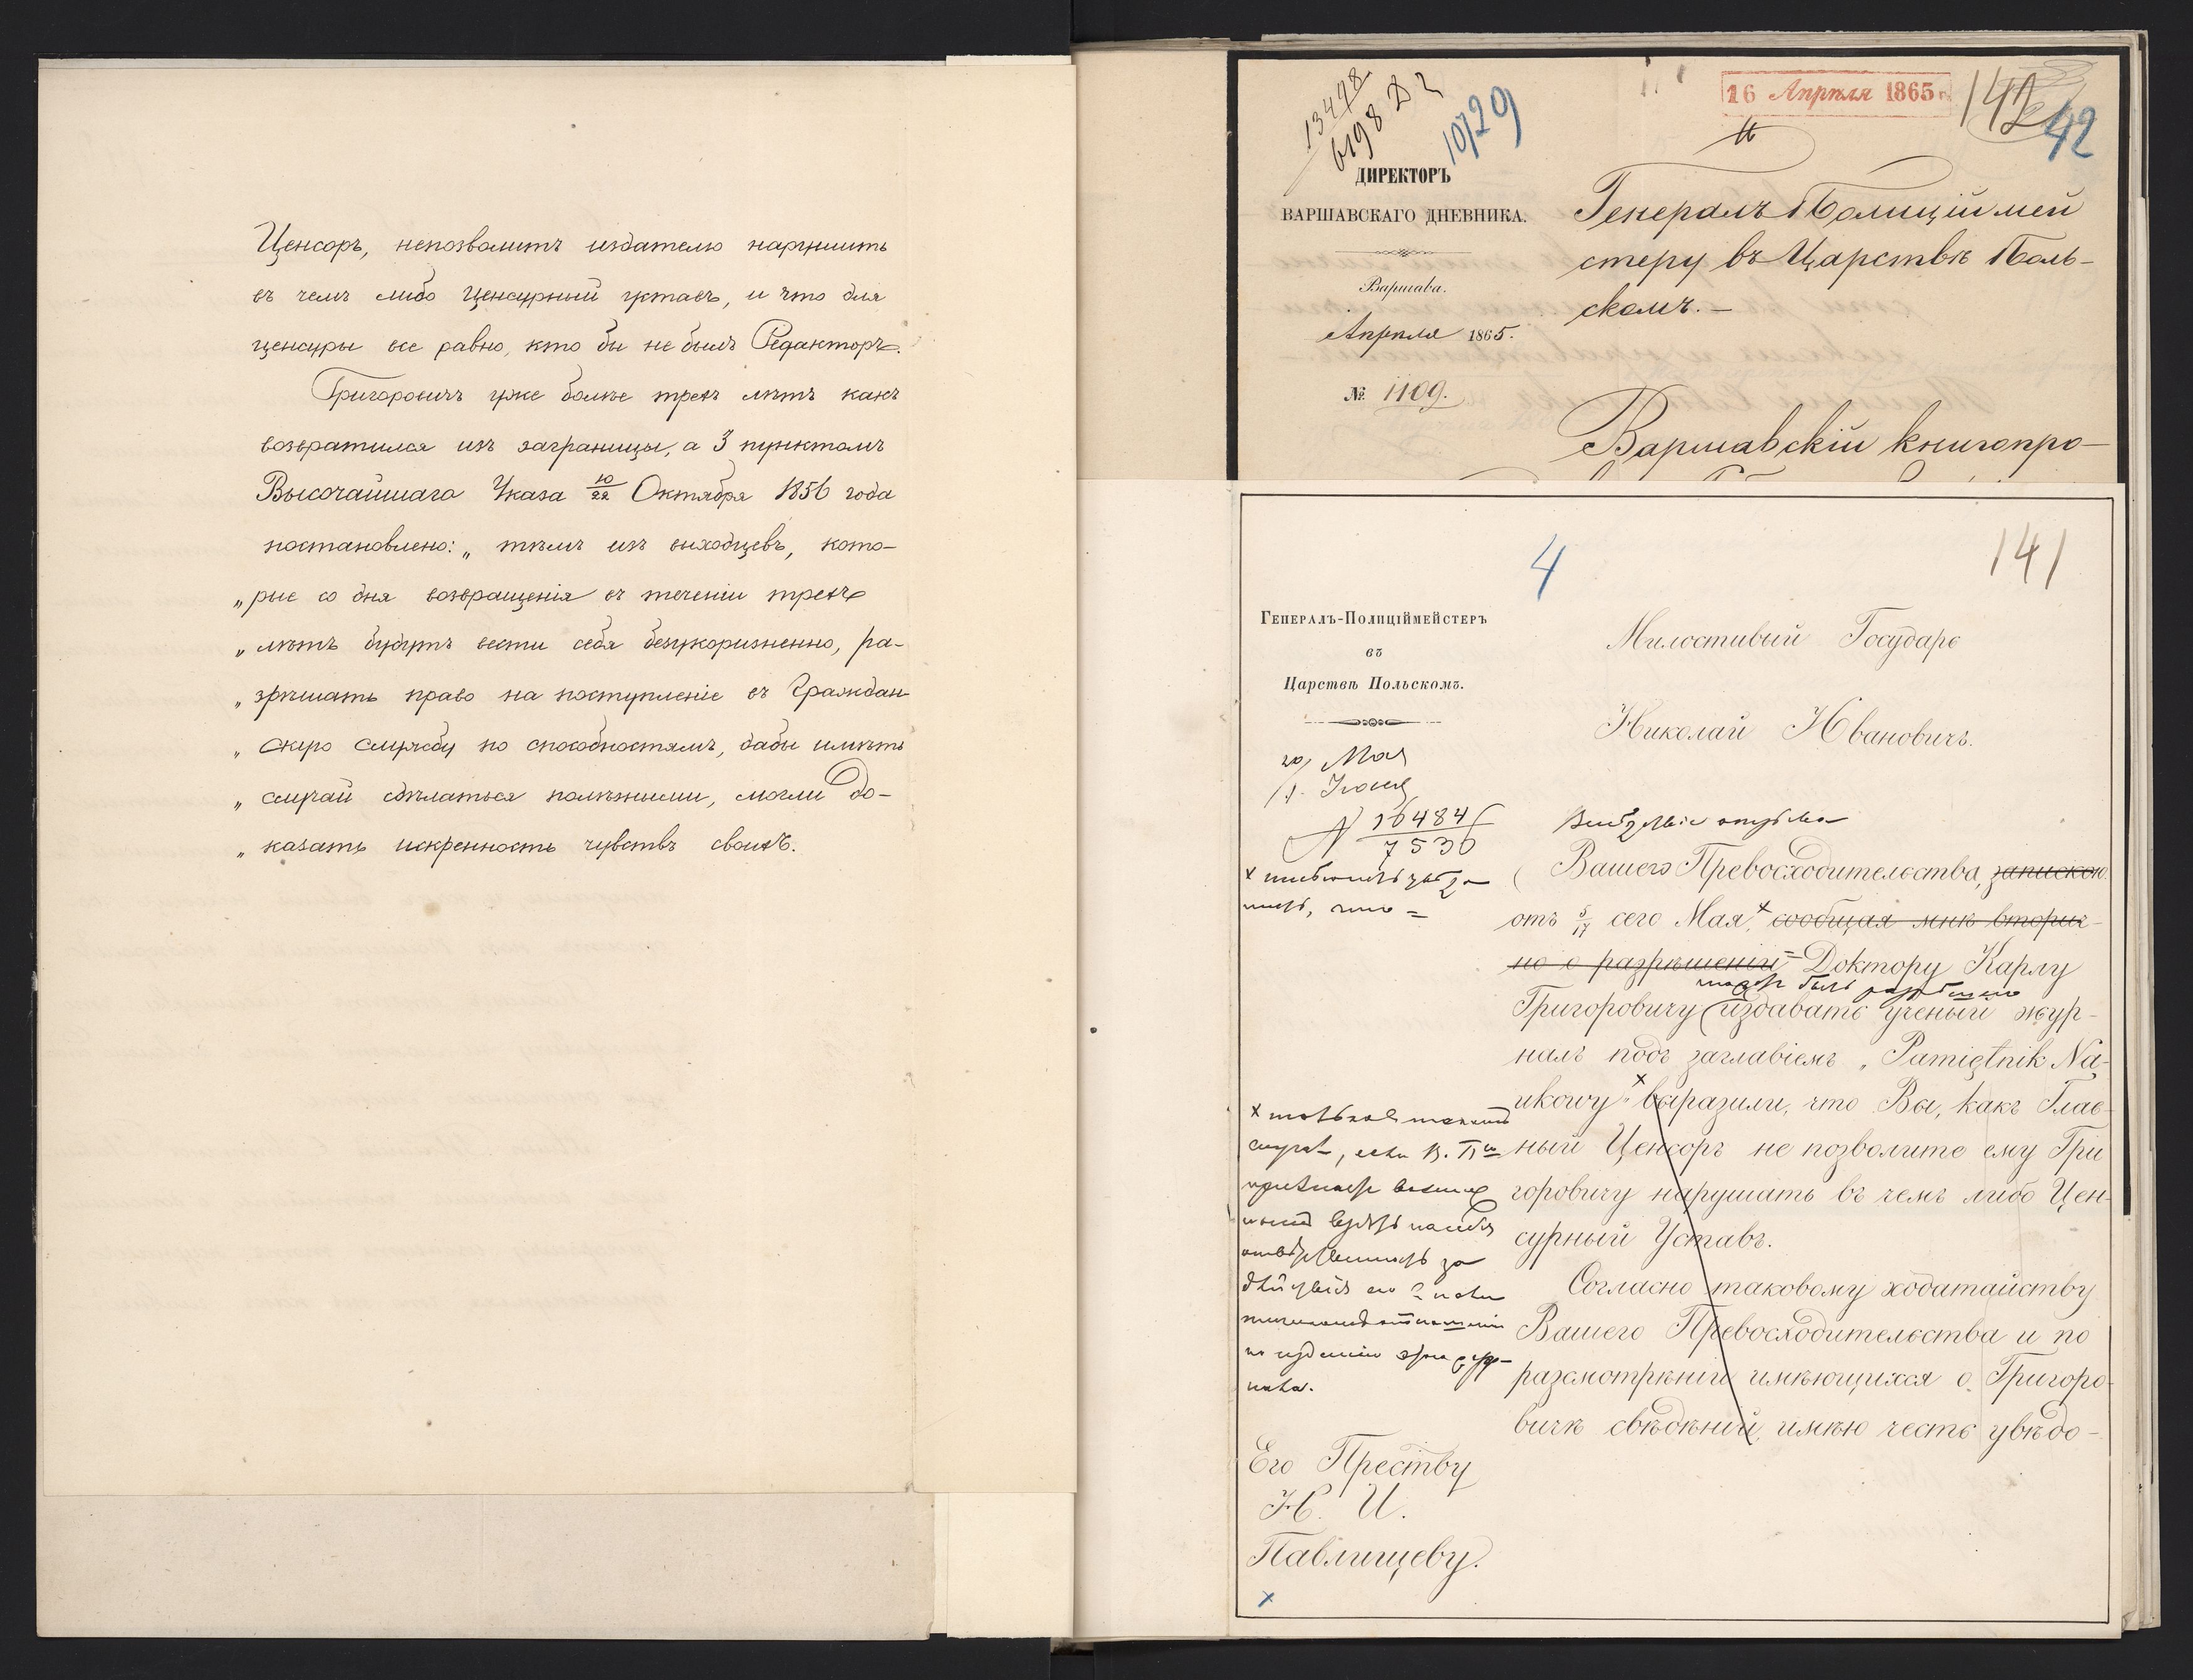 Ценсоръ, непозволитъ издателю нарушить
въ чемъ либо Ценсурный уставъ, и что для
ценсуры все равно, кто бы не былъ Редакторъ.
Григоровичъ уже болѣе трехъ лѣтъ какъ
возвратился изъ заграницы, а 3 пунктомъ
Высочайшаго Указа 10/22 Октября 1856 года
постановлено: „тѣмъ изъ выходцевъ, кото-
„рые со дня возвращенія въ теченіи трехъ
„лѣтъ будутъ вести себя безукоризненно, ра-
„зрѣшать право на поступленіе въ Граждан-
„скую службу по способностямъ, дабы имѣть
„случай сдѣлаться полезными, могли до-
„казать искренность чувствъ своихъ.
13478
6198 Д 2
10729
16 Апрѣля 1865 г.
142
42
ДИРЕКТОРЪ
ВАРШАВСКАГО ДНЕВНИКА.
Варшава.
Апрѣля 1865.
№ 1109.
Генералъ Полиціймей
стеру въ Царствѣ Поль-
скомъ.—
Варшавскій книгопро-
4
141
ГЕНЕРАЛЪ-ПОЛИЦІЙМЕЙСТЕРЪ
въ
Царствѣ Польскомъ.
20/ Мая
/1. Іюня
N 16484/
7530
Милостивый Государь
Николай Ивановичъ.
Вслѣдствіе отзыва
Вашего Превосходительства, запискою
отъ 5/17 сего Мая, сообщая мнѣ вторич-
но о разрѣшеніи = Доктору Карлу
можетъ быть разрѣшено
Григоровичу издавать ученый жур-
налъ подъ заглавіемъ „Pamiętnik Na-
ukowy" выразили, что Вы, какъ Глав-
ный Ценсоръ не позволите ему Гри
горовичу нарушать въ чемъ либо Цен-
сурный Уставъ.
Согласно таковому ходатайству
Вашего Превосходительства и по
разсмотрѣніи имѣющихся о Григоро-
вичѣ свѣдѣній, имѣю честь увѣдо-
что =
x только въ
случаѣ, если В. П.
на себя
отвѣтственность за
дѣйствія его
по изданію
нала.
Его Прест̅ву
Н. И.
Павлищеву.
x